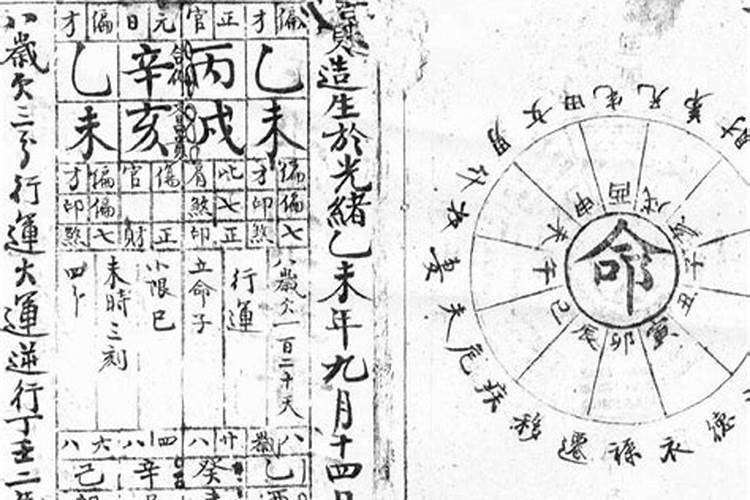 造生於光緒乙未年九月十四日
偏才 正官 元日 偏才
乙 丙 辛 乙
未 戌 亥 未
偏才 比肩 傷官 偏才
偏印 七煞 偏印
七煞 正印 正財 七煞
八歲欠一百二十天
行運
立命子
小限巳
未時三刻
八歲 廿八 四八 六八
乙 癸 辛 己
八歲欠三分行運大運逆行丁壬二年
命
子 丑 寅 卯 辰 巳 午 未 申 酉 戌 亥
財 弟 兄 宅 田 女 男
妻 夫 厄 疾 移 遷 祿 衣